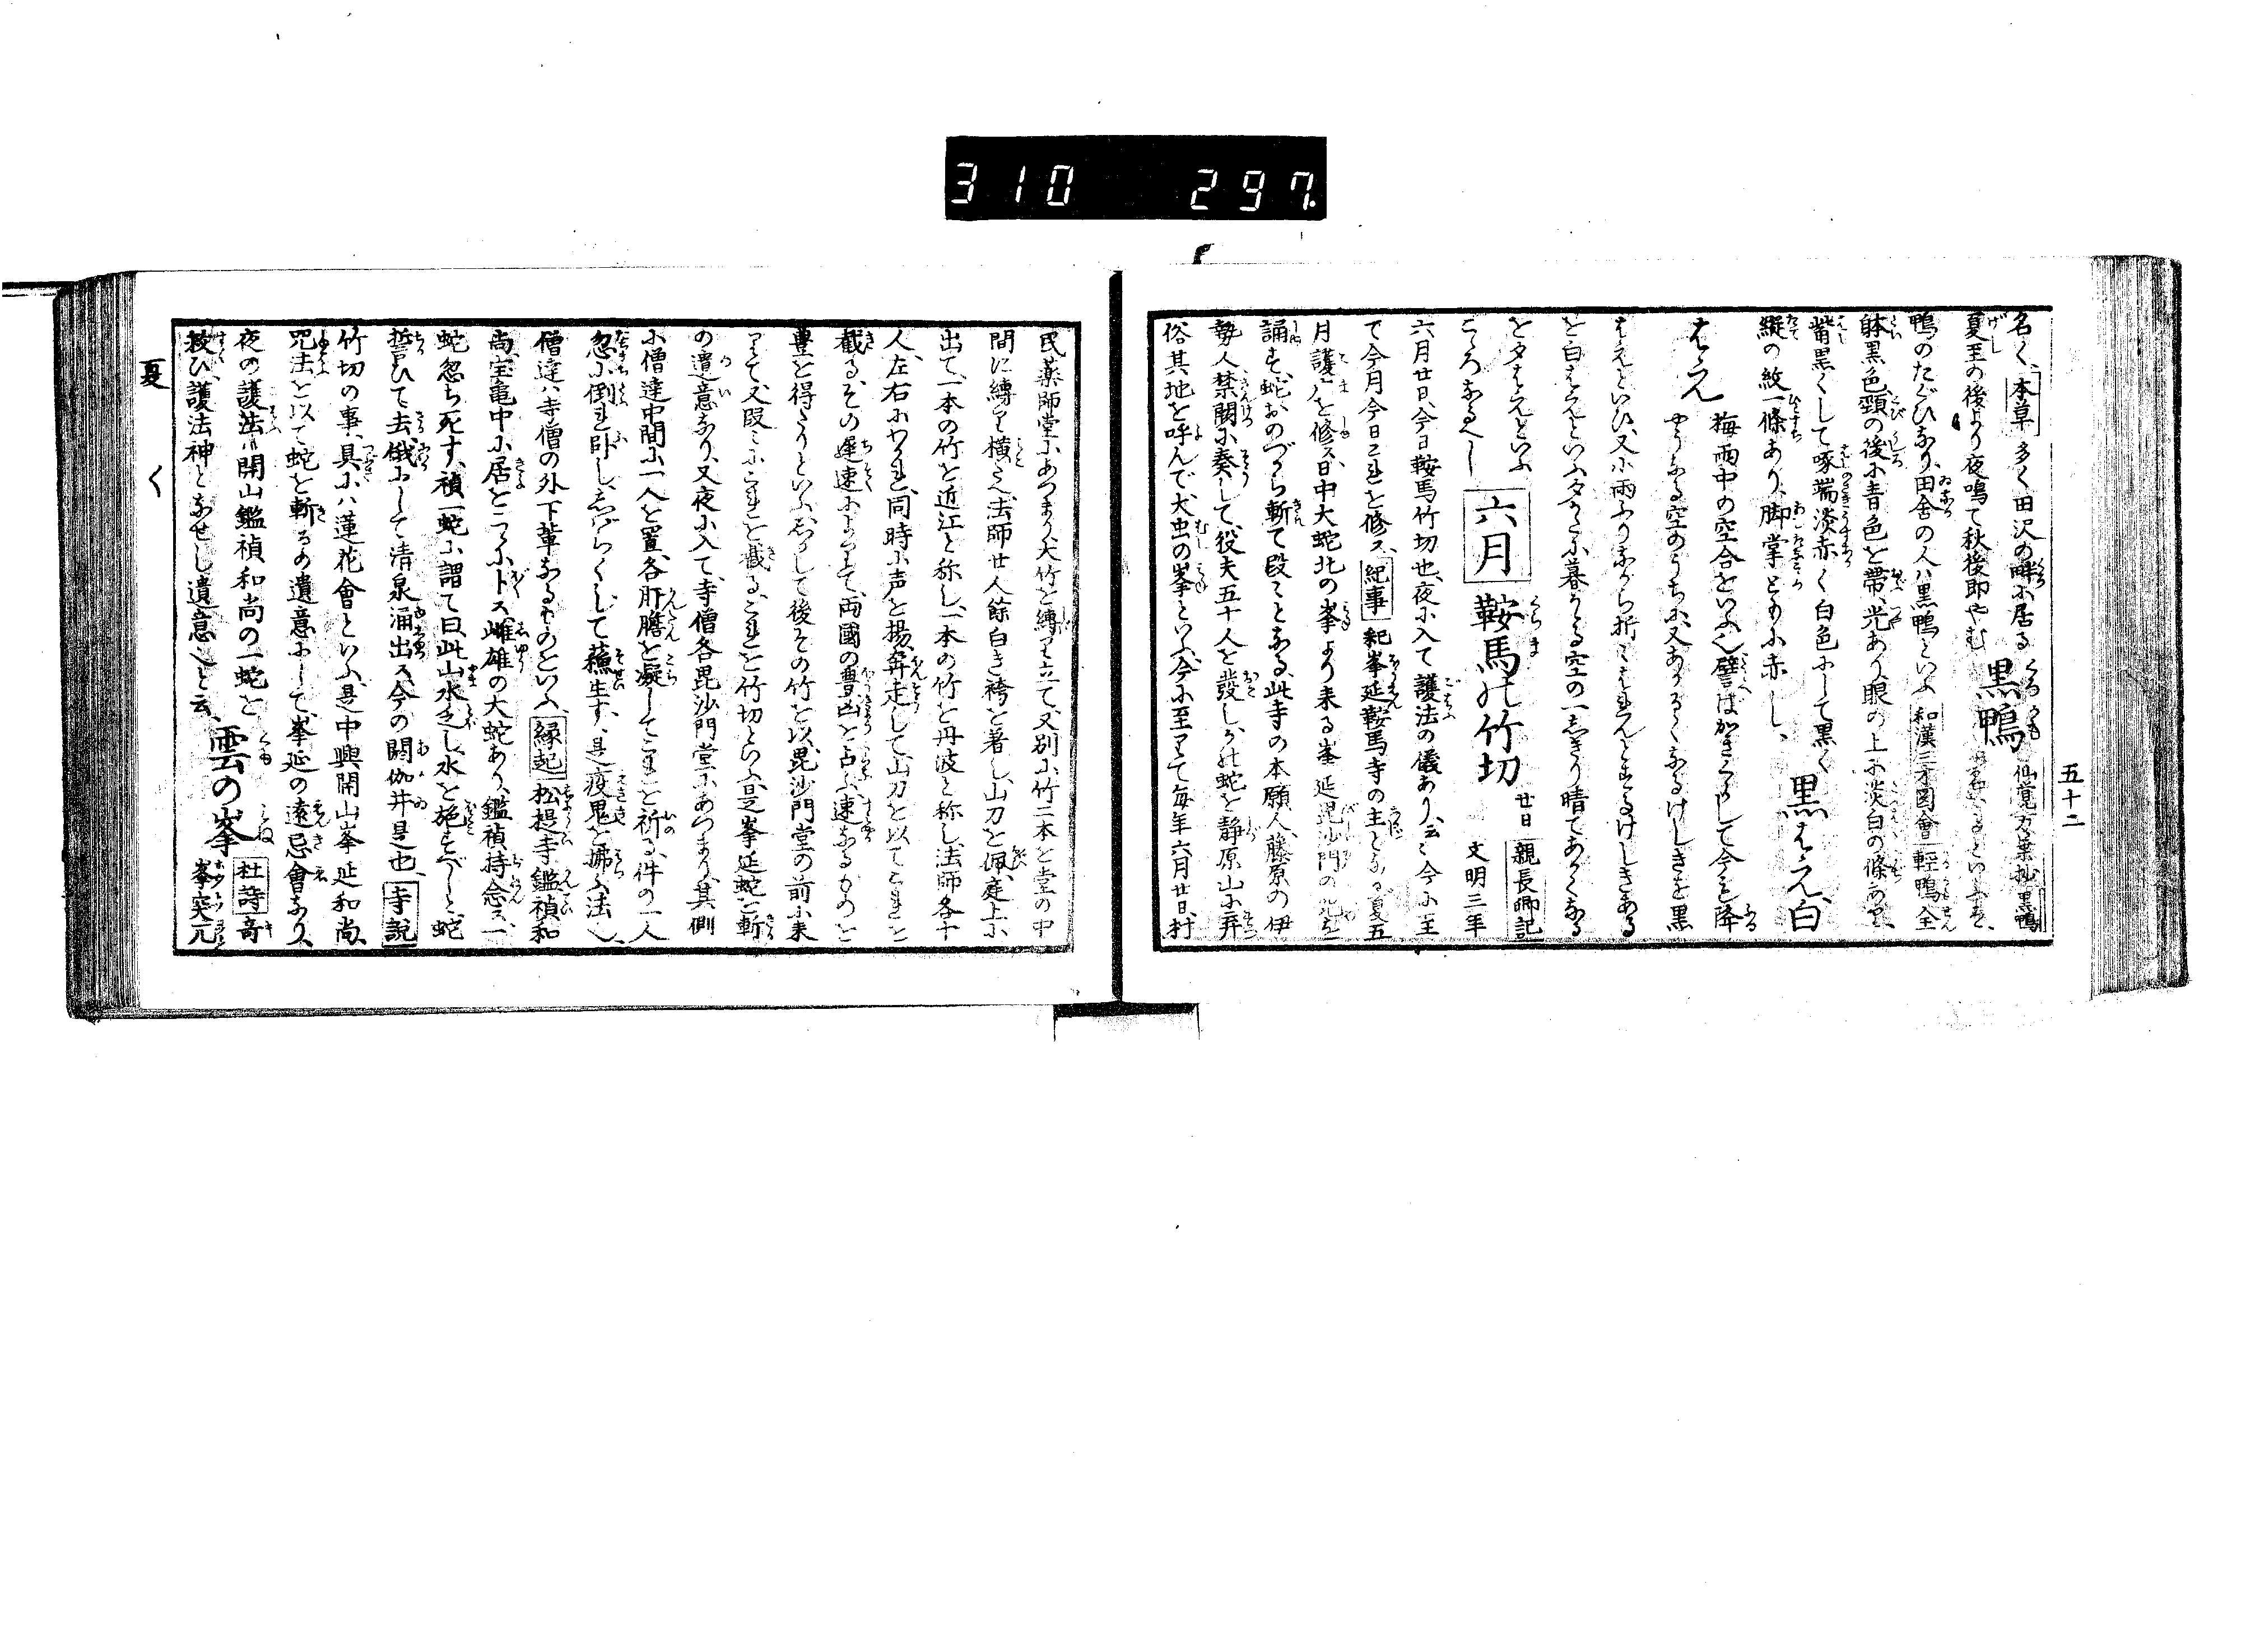 310 297
五十二
名く、本草 多く田沢の畔に居る 黒鴨 仙覚万葉抄 黒鴨
夏至の後より夜鳴て秋後即やむ
鴨のたぐひなり、田舎の人ハ黒鴨といふ 和漢三才図會 軽鴨全
躰黒色頸の後に青色を帯、光あり、眼の上に淡白の條あり、
觜黒くして啄端淡赤く白色にして黒く 黒はえ、白
縦の紋一條あり、脚掌ともに赤し、
はえ 梅雨中の空合をいふ也、譬ばかきくらして今も降
やうなる空のうちに、又あかるくなるけしきを黒
はえといひ、又小雨ふりながら折々はれんとするけしきある
を白はえといふ、夕かた小暮かゝる空の一しきり晴てあかくなる
を夕はえといふ 六月 鞍馬の竹切 廿日 親長卿記
こゝろなるべし 文明三年
六月廿日、今日鞍馬竹切也、夜に入て護法の儀あり、云々 今に至
て今月今日これを修ス、紀事 紀峯延鞍馬寺の主となる、夏五
月護广を修ス、日中大蛇北の峯より来る、峯延毘沙門の咒を
誦す、蛇おのづから斬て段々となる、此寺の本願人、藤原の伊
勢人禁闕に奏して、役夫五十人を發し、かの蛇を静原山に弃
俗其地を呼んで大虫の峯といふ、今に至りて毎年六月廿日、村
民薬師堂にあつまり、大竹を縛り立て、又別に竹二本を堂の中
間に縛り横たへ、法師廿人餘白き袴を著し、山刀を佩、庭上に
出て、一本の竹を近江と称し、一本の竹を丹波と称し、法師各十
人、左右にわかれ、同時に声を揚、奔走して山刀を以てこれを
截る、その遅速によりて、両國の豊凶を占ふ、速なるものを
豊を得たりといふ、しかして後その竹を以、毘沙門堂の前に来
りて又段々にこれを截る、これを竹切といふ、是峯延蛇を斬
の遺意なり、又夜に入て、寺僧各毘沙門堂にあつまり、其側
に僧達中間に一人を置、各肝膽を凝してこれを祈る、件の一人
忽に倒れ卧し、しばらくして蘓生す、是疫鬼を拂ふ法也、
僧達ハ寺僧の外下輩なるものをいふ、縁起 招提寺鑑禎和
尚、宝亀中に居をこゝに卜ス、雌雄の大蛇あり、鑑禎持念ス、一
蛇忽ち死す、禎一蛇に謂て曰、此山水乏し、水を施すべしと、蛇
誓ひて去、俄にして清泉涌出ス、今の閼伽井是也、寺説
竹切の事、具にハ蓮花會といふ、是中興開山峯延和尚、
咒法を以て蛇を斬るの遺意にして、峯延の遠忌會なり、
夜の護法ハ開山鑑禎和尚の一蛇を 雲の峯 杜詩 奇
救ひ、護法神となせし遺意也と云、 峯突兀
夏 く